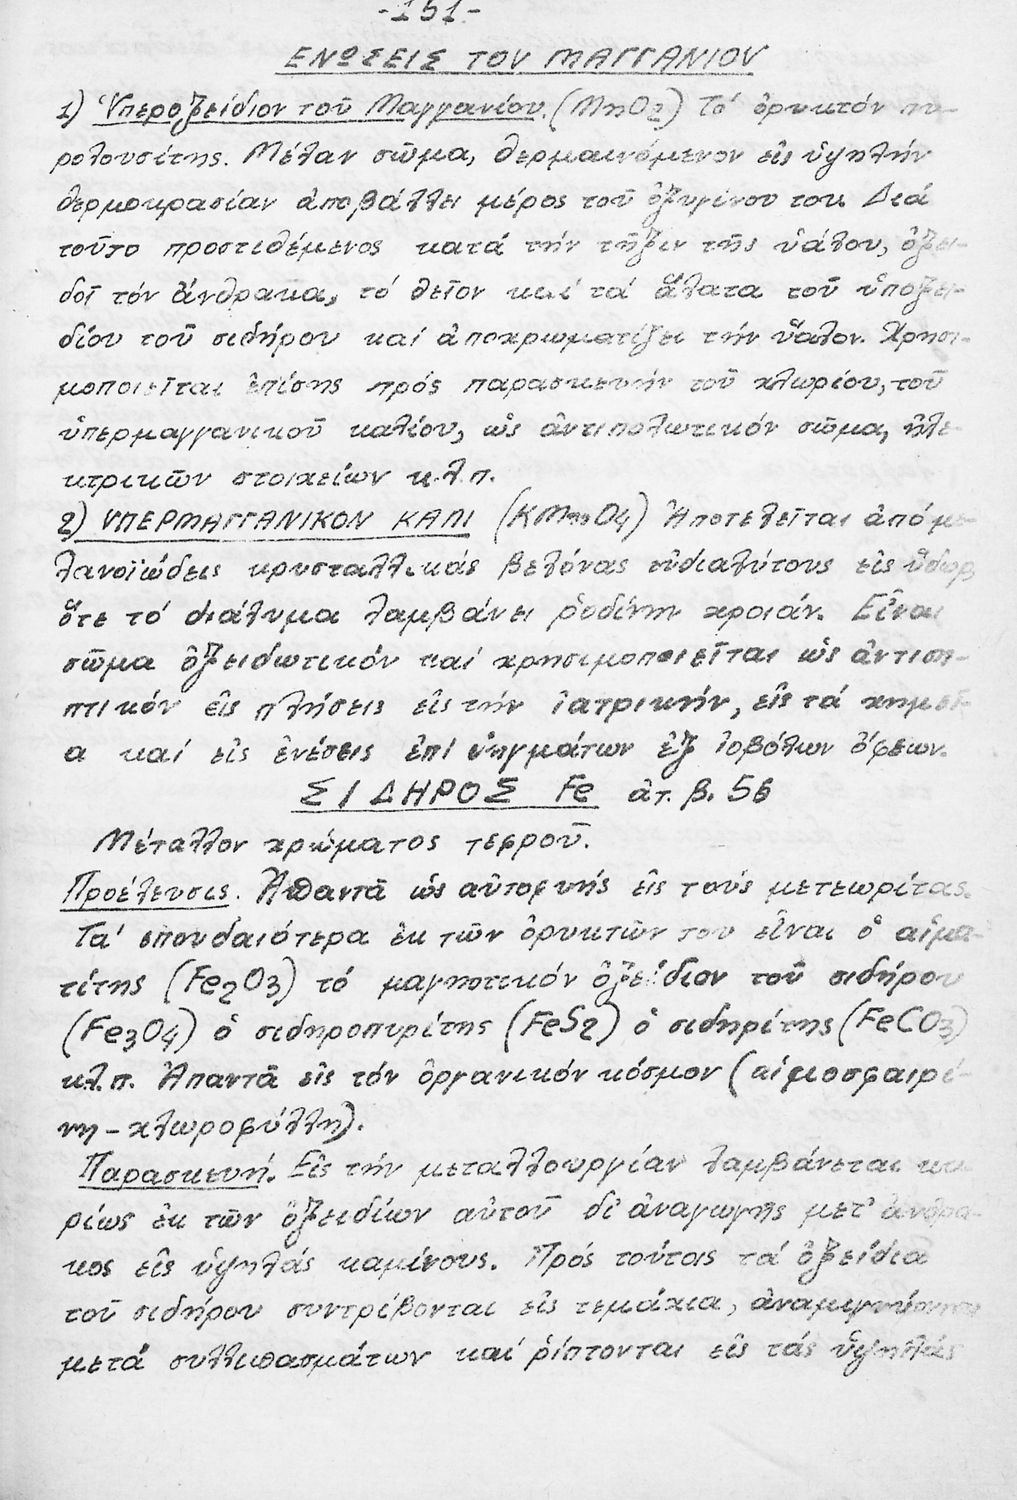 -151-
ΕΝΩΣΕΙΣ ΤΟΥ ΜΑΓΓΑΝΙΟΥ
1) Ὑπεροξείδιον τοῦ Μαγγανίου. (MnO2) Τό ὀρυκτόν πυ-
ρολουσίτης. Μέλαν σῶμα, θερμαινόμενον εἰς ὑψηλήν
θερμοκρασίαν ἀποβάλλει μέρος τοῦ ὀξυγόνου του. Διά
τοῦτο προστιθέμενος κατά τήν τῆξιν τῆς ὑάλου, ὀξει-
δοῖ τόν ἄνθρακα, τό θεῖον καί τά ἅλατα τοῦ ὑποξει-
δίου τοῦ σιδήρου καί ἀποχρωματίζει τήν ὕαλον. Χρησι-
μοποιεῖται ἐπίσης πρός παρασκευήν τοῦ χλωρίου, τοῦ
ὑπερμαγγανικοῦ καλίου, ὡς ἀντιπολωτικόν σῶμα, ἠλε-
κτρικῶν στοιχείων κ.λ.π.
2) ΥΠΕΡΜΑΓΓΑΝΙΚΟΝ ΚΑΛΙ (KMnO4) Ἀποτελεῖται ἀπό με-
λανοϊώδεις κρυσταλλικάς βελόνας εὐδιαλύτους εἰς ὕδωρ
ὅτε τό διάλυμα λαμβάνει ῥοδίνην χροιάν. Εἶναι
σῶμα ὀξειδωτικόν καί χρησιμοποιεῖται ὡς ἀντιση-
πτικόν εἰς πλήσεις εἰς τήν ἰατρικήν, εἰς τά χημεῖ-
α καί εἰς ἐνέσεις ἐπί δηγμάτων ἐξ ἰοβόλων ὄφεων.
ΣΙΔΗΡΟΣ Fe ἀτ. β. 56
Μέταλλον χρώματος τεφροῦ.
Προέλευσις. Ἀπαντᾶ ὡς αὐτοφυής εἰς τούς μετεωρίτας.
Τά σπουδαιότερα ἐκ τῶν ὀρυκτῶν του εἶναι ὁ αἱμα-
τίτης (Fe2O3) τό μαγνητικόν ὀξείδιον τοῦ σιδήρου
(Fe3O4) ὁ σιδηροπυρίτης (FeS2) ὁ σιδηρίτης (FeCO3)
κ.λ.π. Ἀπαντᾶ εἰς τόν ὀργανικόν κόσμον (αἱμοσφαιρί-
νη - χλωροφύλλη).
Παρασκευή. Εἰς τήν μεταλλουργίαν λαμβάνεται κυ-
ρίως ἐκ τῶν ὀξειδίων αὐτοῦ δι' ἀναγωγῆς μετ' ἄνθρα-
κος εἰς ὑψηλάς καμίνους. Πρός τούτοις τά ὀξείδια
τοῦ σιδήρου συντρίβονται εἰς τεμάχια, ἀναμιγνύονται
μετά συλλιπασμάτων καί ῥίπτονται εἰς τάς ὑψηλάς